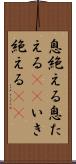 息絶える息た
える ( ( いき
絶える ( (